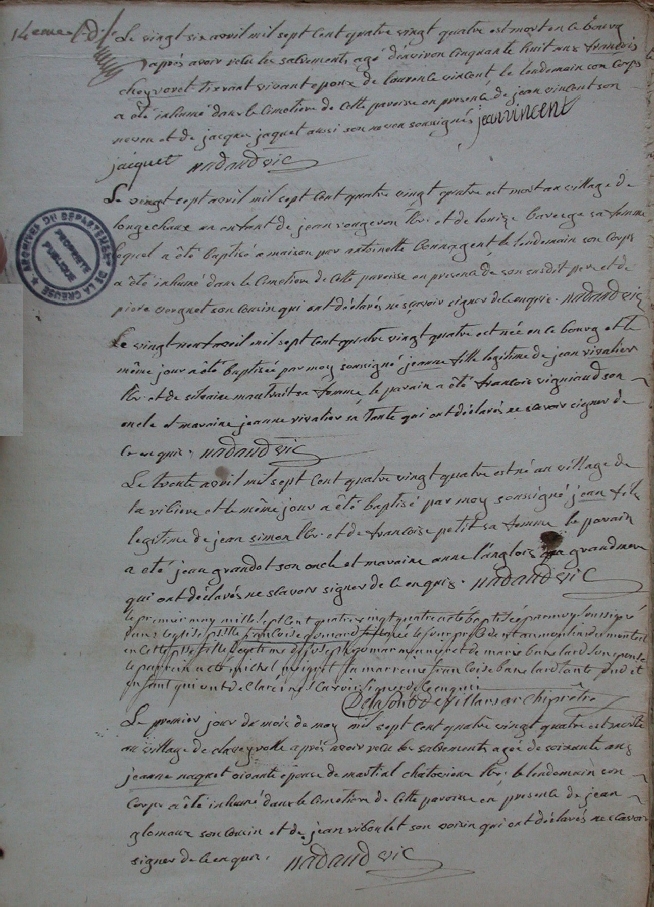 14eme
Le vingt six avril mil sept cent quatre vingt quatre est mort en ce bourg
après avoir reçu les sacrements agé d'environ cinquante huit ans françois
vivant epoux de laurence vincent le lendemain son corps
a été inhumé dans le cimetière de cette paroisse en presence de jean vincent son
neveu et de jacque jaquet aussi son neveu soussignés jean vincent
jacquet nadaud vic
Le vingt sept avril mil sept cent quatre vingt quatre est mort au village de
longechaux un enfant de jean vougeron et de louize sa femme
lequel a été baptisé a maison par antoinette le lendemain son corps
a été inhumé dans le cimetière de cette paroisse en presence de son susdit pere et de
son cousin qui ont déclarés ne sçavoir signer de ce enquis. nadaud vic
ARCHIVES DU DÉPARTEMENT DE LA CREUSE
PROPRIÉTÉ PUBLIQUE
Le vingt neuf avril mil sept cent quatre vingt quatre est née en ce bourg et le
même jour a été baptisée par moy soussigné jeanne fille legitime de jean vivalier
et de silvaine sa femme, le parain a été françois vigniaud son
oncle et maraine jeanne vivalier sa tante qui ont déclarés ne scavoir signer de
ce enquis. nadaud vic
Le trente avril mil sept cent quatre vingt quatre est né au village de
la ribiere et le même jour a été baptisé par moy soussigné jean fils
legitime de jean simon et de françoise petit sa femme le parain
a été jean grandet son oncle et maraine anne l'anglois grandmere
qui ont déclarés ne scavoir signer de ce enquis. nadaud vic
le premier may mil sept cent quatre vingt quatre a été baptisée par moy soussigné
dans l'eglise françoise née le jour
en cette de et de marie son epouse
le parrain a été michel la marreine françoise tante
enfant qui ont declaré ne sçavoir signer de ce enquis
Le premier jour de mois de may mil sept cent quatre vingt quatre est morte
au village de après avoir reçu les sacrements agée de soixante ans
jeanne naquet vivante epouse de martial le lendemain son
corps a été inhumé dans le cimetière de cette paroisse en presence de jean
glomaux son cousin et de jean riboulet son voisin qui ont déclarés ne scavoir
signer de ce enquis. nadaud vic